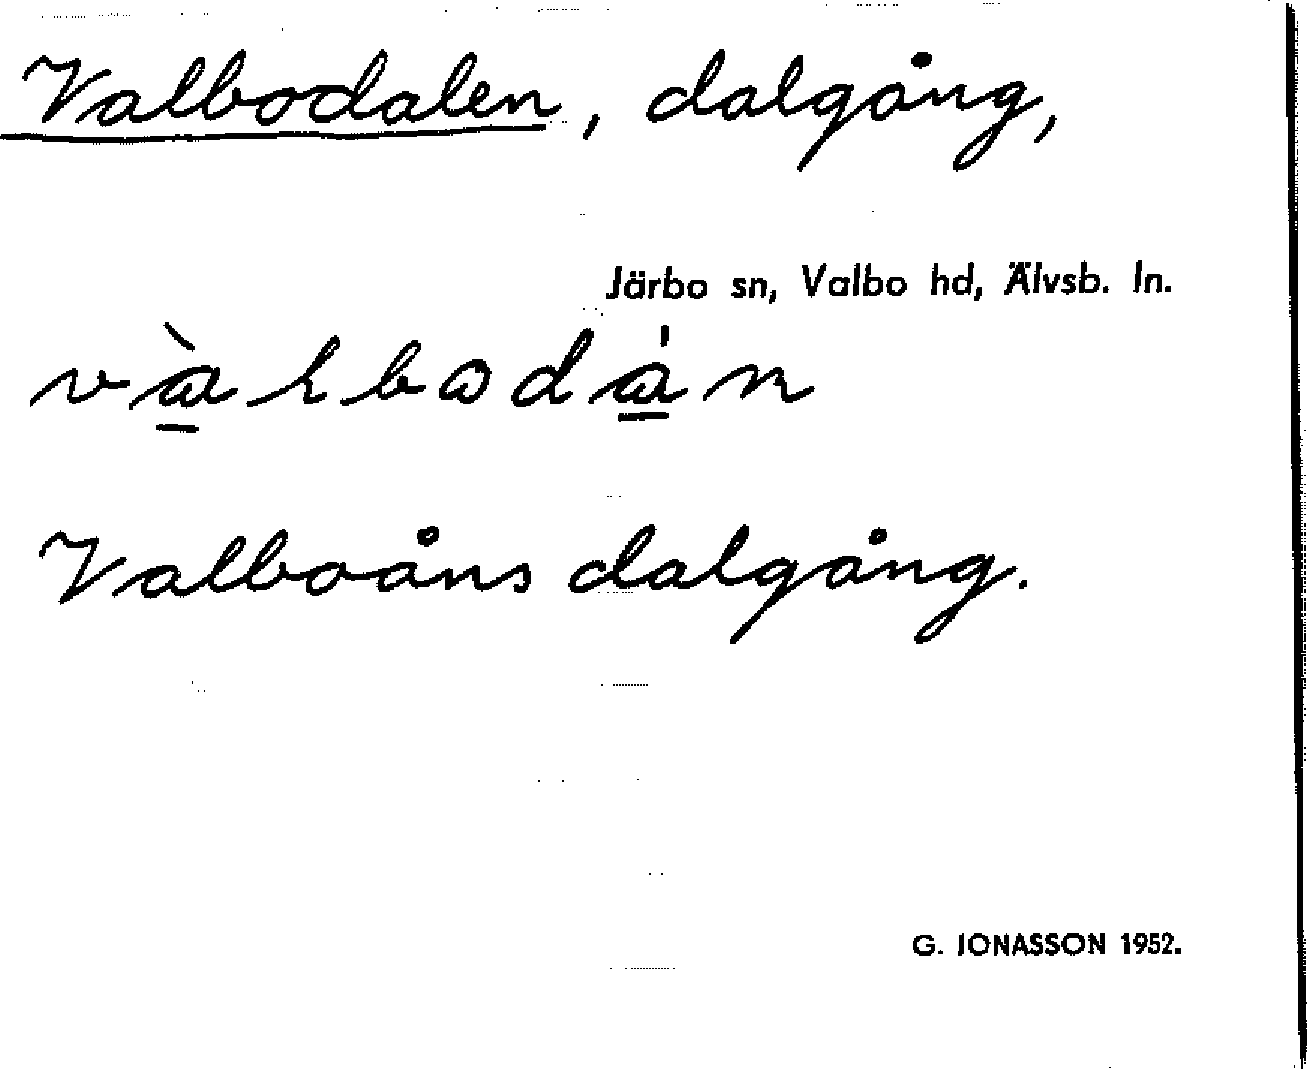 Valbodalen, dalgång,
Järbo sn, Valbo hd, Älvsb. ln.
Valboåns dalgång.
G. JONASSON 1952.